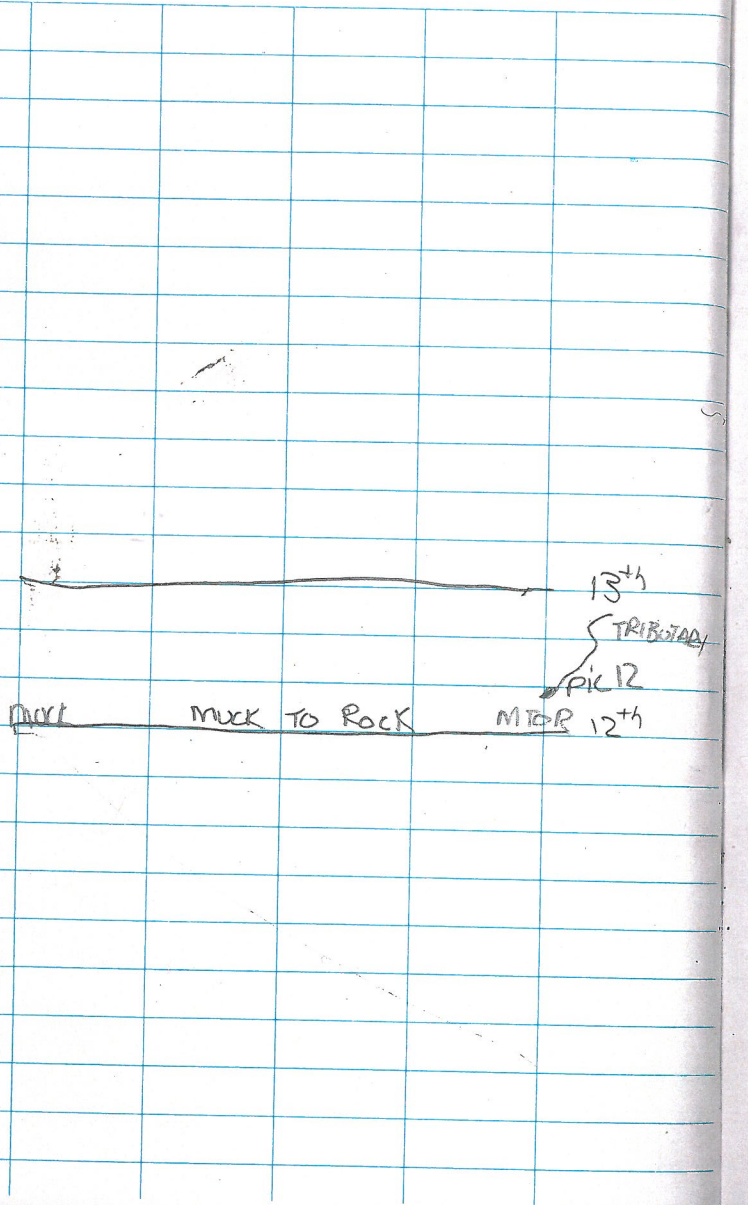 13th
TRIBUTARY
pic 12
MUCK TO ROCK MTOR 12th